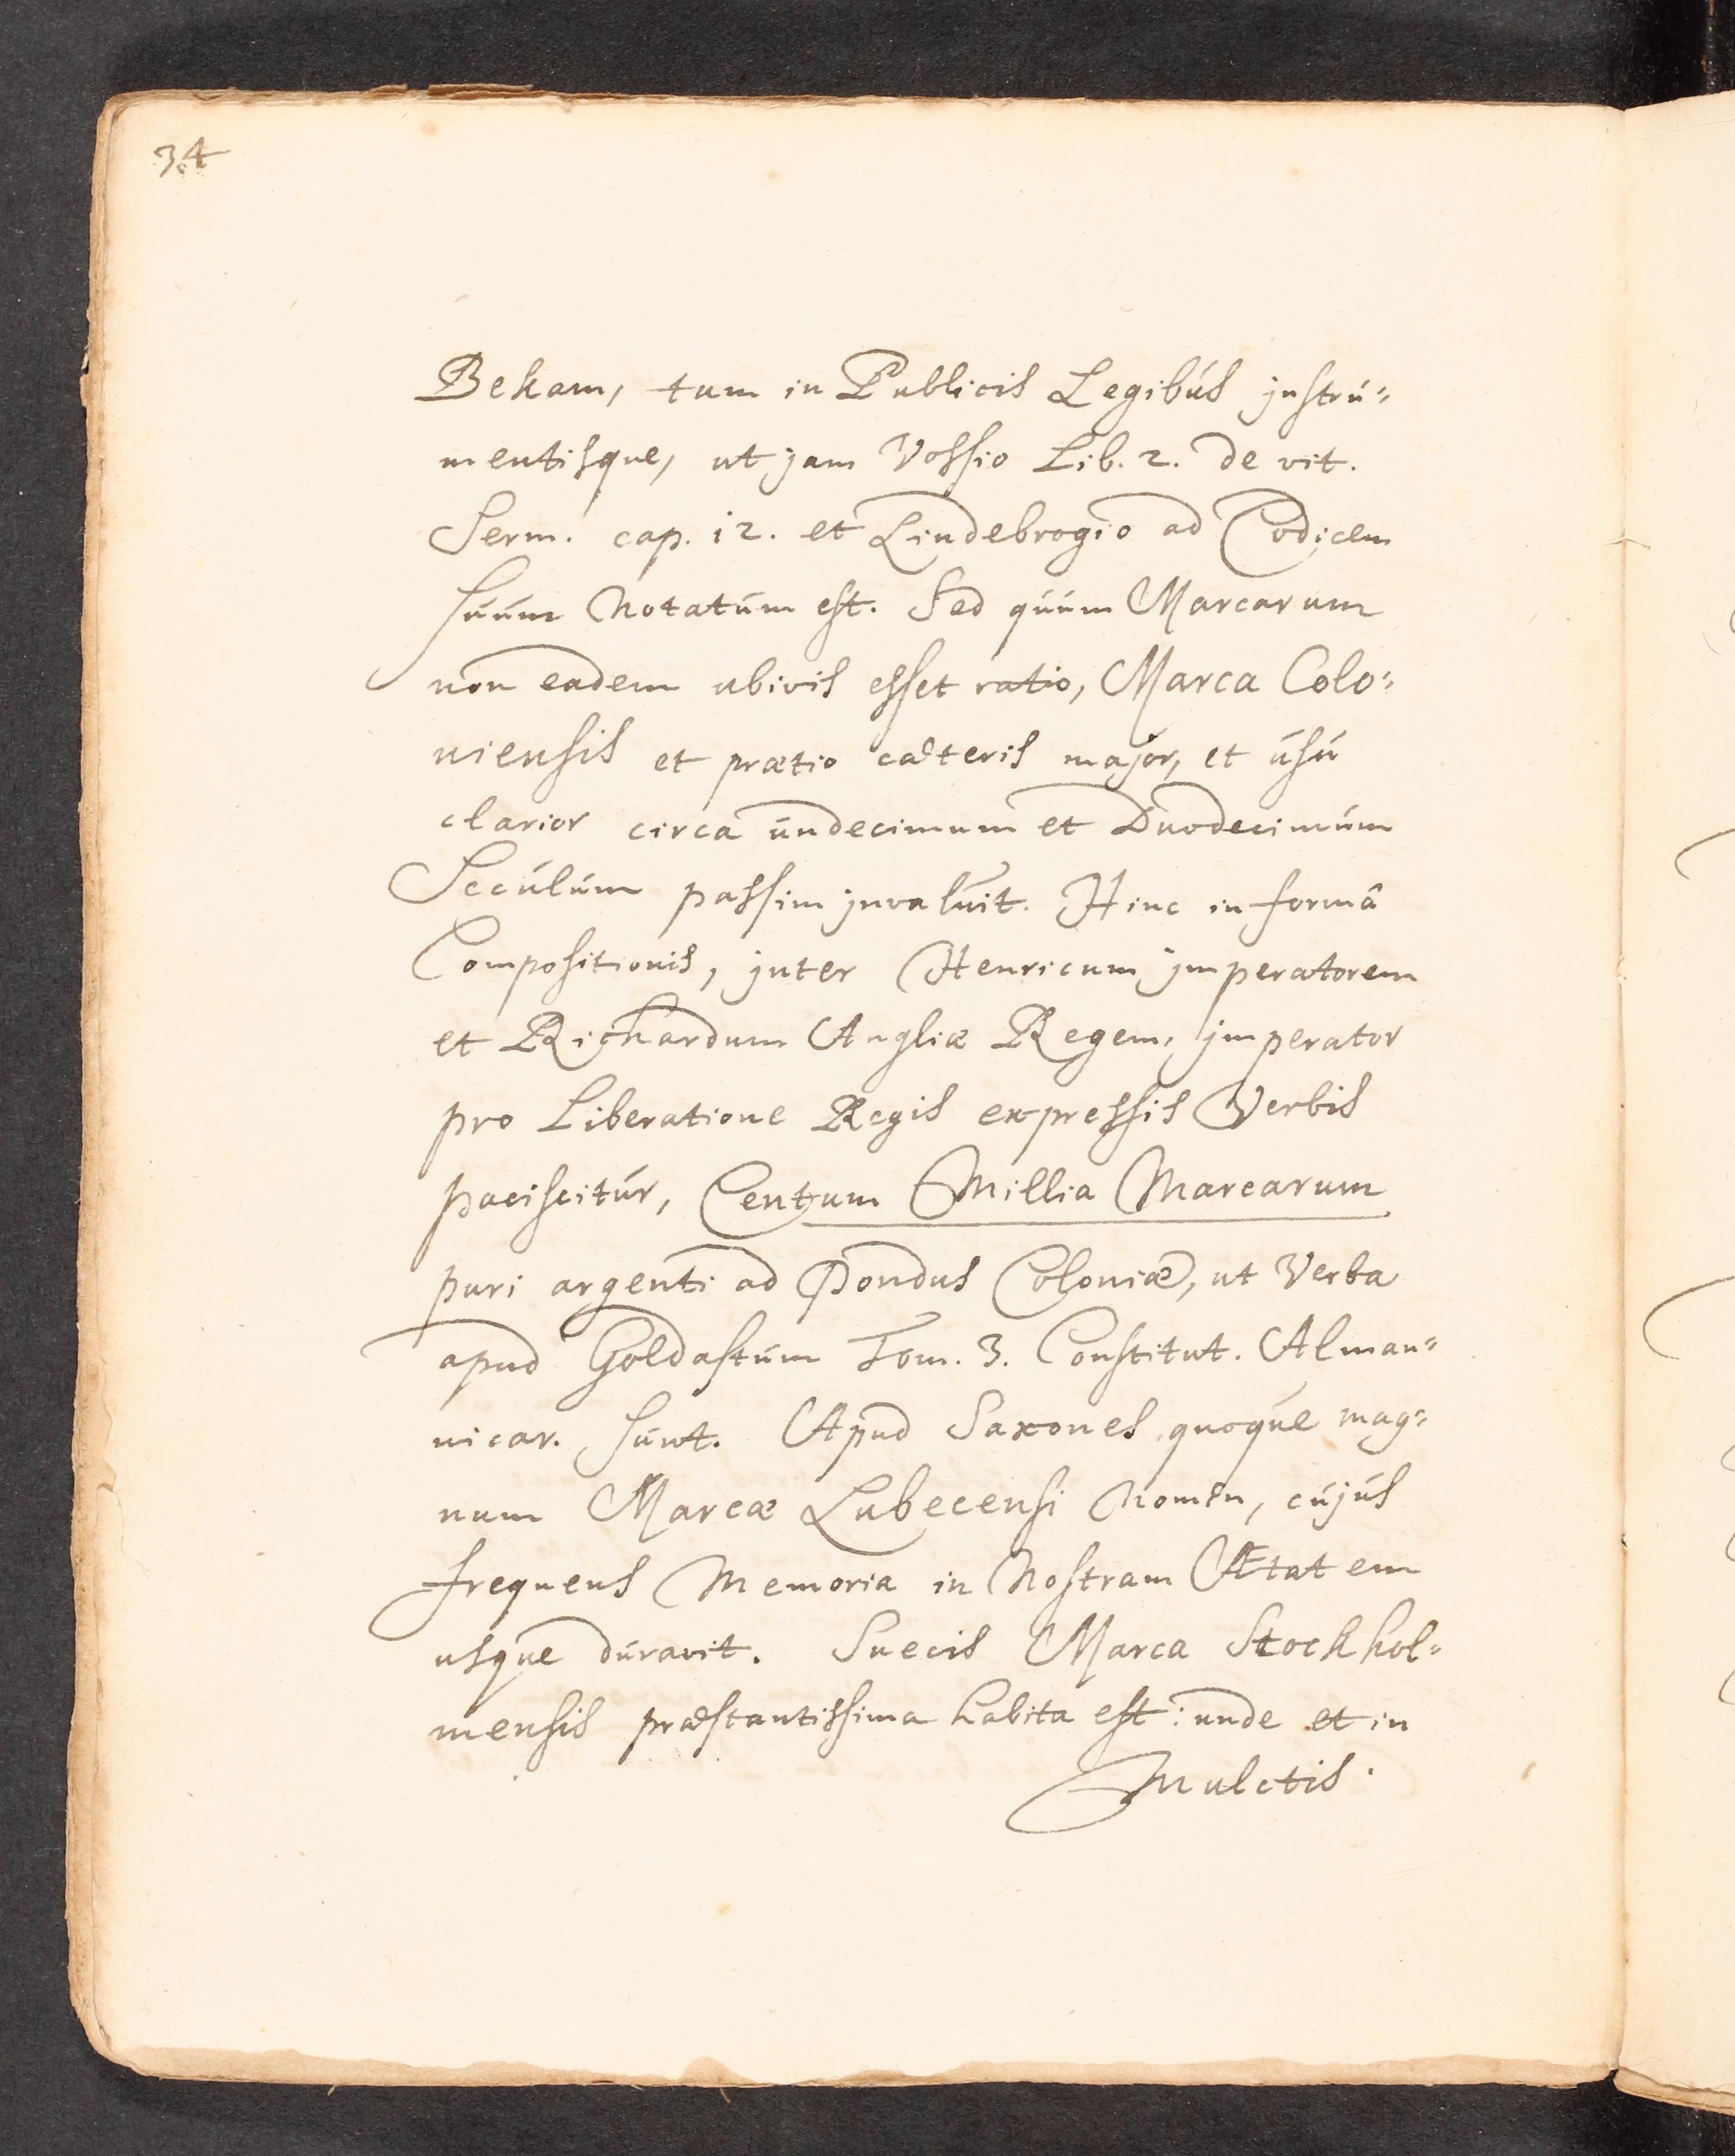 34
Bekam, tum in Publicis Legibús jnstrú=
mentisque, ut jam Vossio Lib. 2. de vit.
Serm. cap. 12. et Lindebrogio ad Codicem
súúm Notatúm est. Sed qúúm Marcarum
non eadem ubivis esset ratio, Marca Colo=
niensis et prætio cæteris major, et úsú
clarior circa úndecimum et Duodecimúm
Secúlúm passim jnvalúit. Hinc in formâ
Compositionis, jnter Henricum jmperatorem
et Richardum Angliæ Regem, jmperator
pro Liberatione Regis expressis Verbis
paciscitúr, Centum Millia Marcarum
puri argenti ad Pondus Coloniæ, ut Verba
apud Goldastúm Tom. 3. Constitut. Alman=
nicar. súnt. Apud Saxones quoqúe mag=
num Marcæ Lubecensi Nomen, cújús
frequens Memoria in Nostram Ætatem
usque dúravit. Suecis Marca Stockhol=
mensis præstantissima habita est: unde et in
Mulctis.